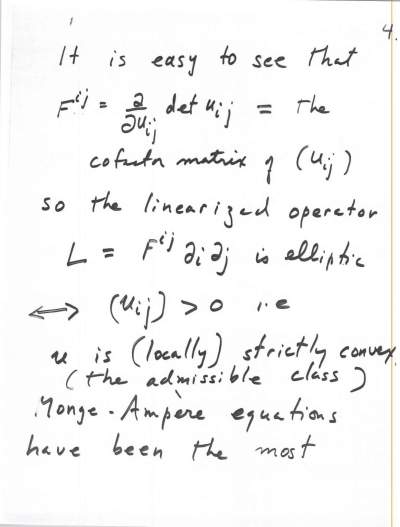 4.
It is easy to see that
F^{ij} = ∂/∂u_{ij} det u_{ij} = the
cofactor matrix of (u_{ij})
so the linearized operator
L = F^{ij} ∂_i ∂_j is elliptic
⟺ (u_{ij}) > 0 i.e
u is (locally) strictly convex
(the admissible class)
Monge-Ampère equations
have been the most